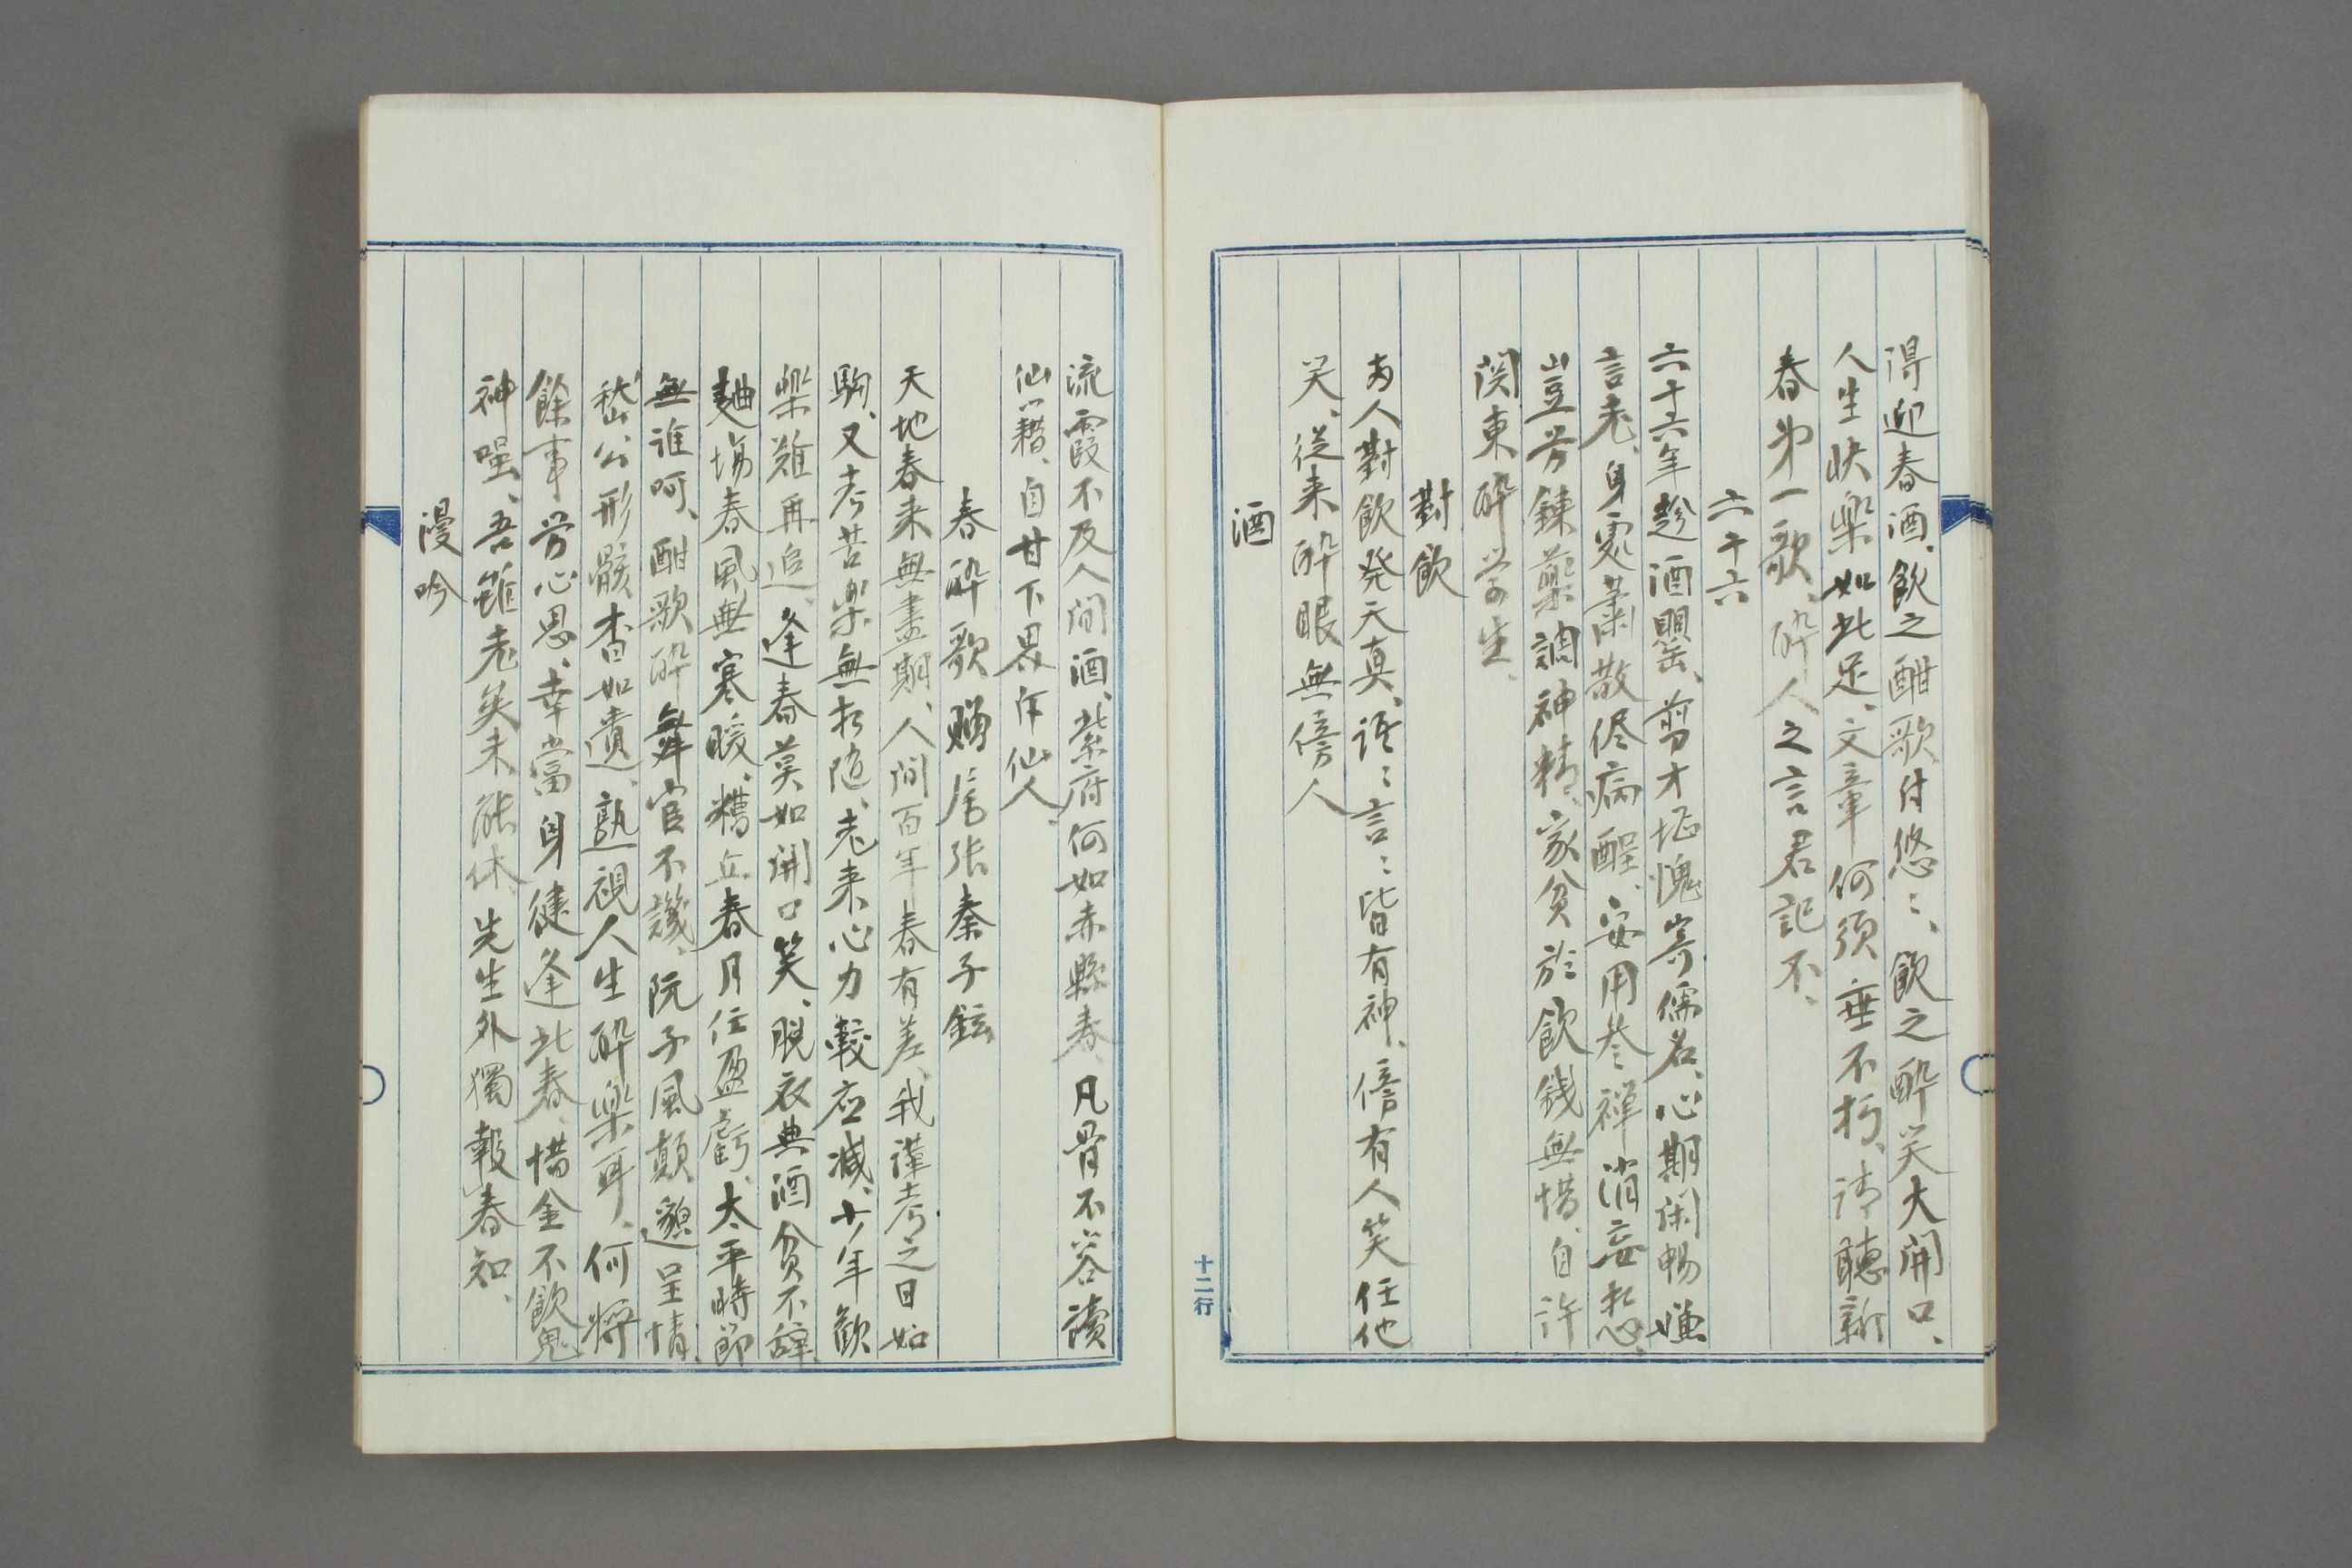 得迎春酒、飲之酣歌付悠〻、飲之醉笑大開口、
人生快楽如此足、文章何須垂不朽、請聽新
春第一歌、醉人之言君記不、
六十六
六十六年趁酒罌、剪才堪愧寄儒名、心期閑暢嫌
言老、身處蕭散倦病醒、安用参禅消妄想、
豈労錬薬調神精、家貧於飲銭無惜、自許
関東醉学生、
對飲
為人對飲発天真、語〻言〻皆有神、傍有人笑任他
笑、從来醉眼無傍人
酒
十二行
流霞不及人間酒、紫府何如赤縣春、凡骨不容讀
仙籍、自甘下界作仙人、
春醉歌贈尾張秦子鉉
天地春来無盡期、人間百年春有差、我謹考之日如
駒、又考苦楽無相随、老来心力較应减、少年歓
楽難再追、逢春莫如開口笑、脱衣典酒貧不辞、
麯塲春風無寒暖、糟丘春月任盈虧、太平時節
無誰呵、酣歌醉舞官不譏、阮子風顛邈呈情、
嵇公形骸杳如遺、熟視人生醉楽耳、何将
餘事労心思、幸當身健逢此春、惜金不飲鬼
神嗤、吾雖老矣未能休、先生外獨報春知、
漫吟